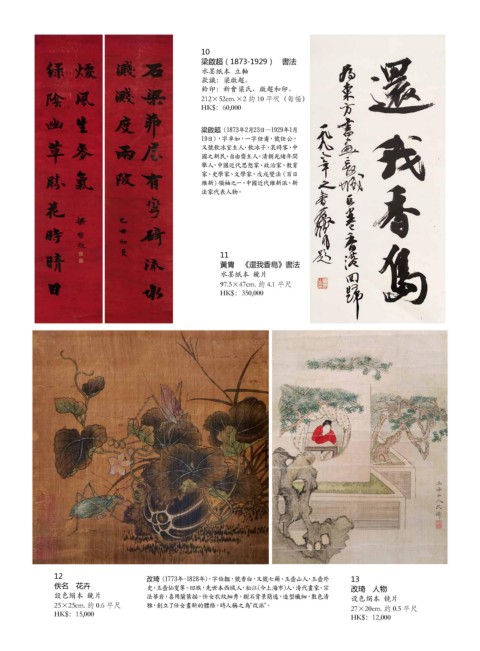 石梁茆屋有彎碕流水
濺濺度兩陂
乙丑初夏
煖風生麥氣
綠陰幽草勝花時晴日
梁啟超
10
梁啟超（1873-1929） 書法
水墨紙本 立軸
款識：梁啟超。
鈐印：新會梁氏、啟超和印。
212×52cm.×2 約 10 平呎（每幅）
HK$： 60,000
梁啟超（1873年2月23日—1929年1月
19日），字卓如，一字任甫，號任公，
又號飲冰室主人、飲冰子、哀時客、中
國之新民、自由齋主人。清朝光緒年間
舉人，中國近代思想家、政治家、教育
家、史學家、文學家。戊戌變法（百日
維新）領袖之一、中國近代維新派、新
法家代表人物。
還我香島
11
黃冑 《還我香島》書法
水墨紙本 鏡片
97.5×47cm. 約 4.1 平尺
HK$： 350,000
12
佚名 花卉
設色絹本 鏡片
25×25cm. 約 0.6 平尺
HK$： 15,000
改琦（1773年-1828年），字伯韞，號香白，又號七薌、玉壺山人、玉壺外
史、玉壺仙叟等。回族，先世本西域人，松江(今上海市)人。清代畫家。宗
法華喦，喜用蘭葉描，仕女衣紋細秀，樹石背景簡逸，造型纖細，敷色清
雅，創立了仕女畫新的體格，時人稱之為"改派"。
13
改琦 人物
設色絹本 鏡片
27×20cm. 約 0.5 平尺
HK$： 12,000